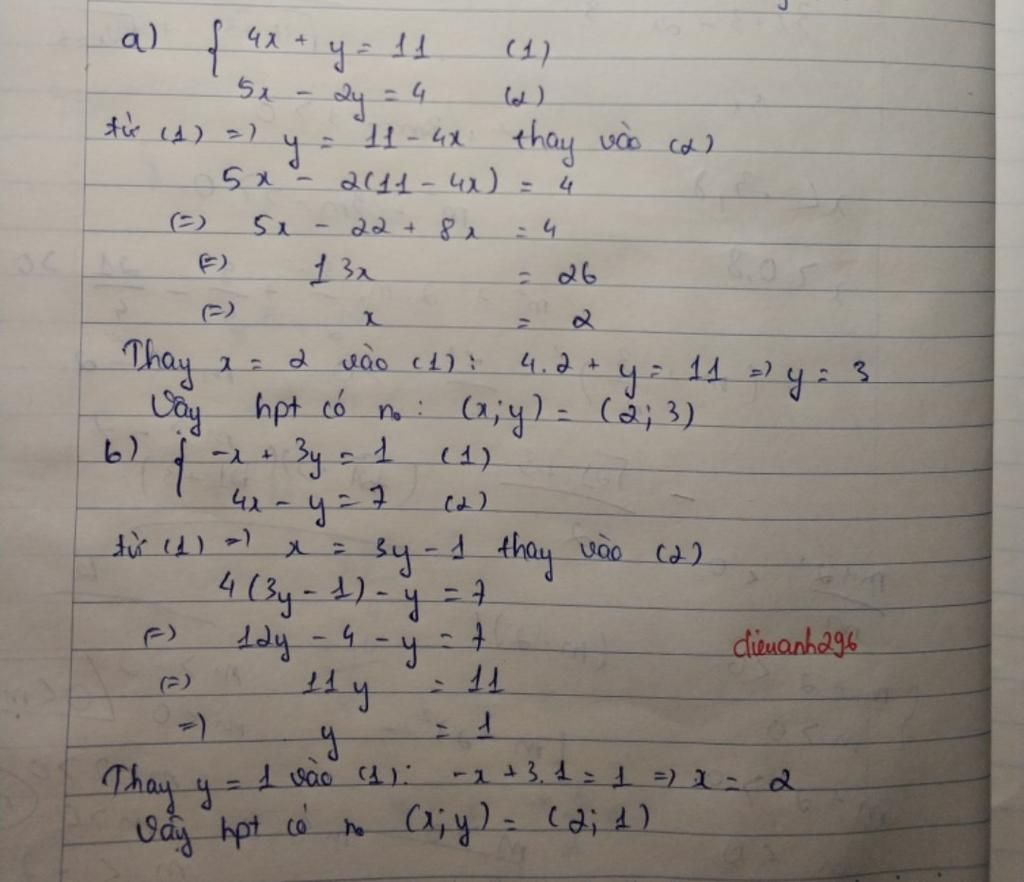 a) { 4x + y = 11 (1)
5x - 2y = 4 (2)
từ (1) => y = 11 - 4x thay vào (2)
5x - 2(11 - 4x) = 4
(=) 5x - 22 + 8x = 4
(=) 13x = 26
(=) x = 2
Thay x = 2 vào (1): 4.2 + y = 11 => y = 3
Vậy hpt có no: (x;y) = (2; 3)
b) { -x + 3y = 1 (1)
4x - y = 7 (2)
từ (1) => x = 3y - 1 thay vào (2)
4(3y - 1) - y = 7
(=) 12y - 4 - y = 7
dieuanh296
(=) 11y = 11
=) y = 1
Thay y = 1 vào (1): -x + 3.1 = 1 => x = 2
Vậy hpt có no (x;y) = (2; 1)